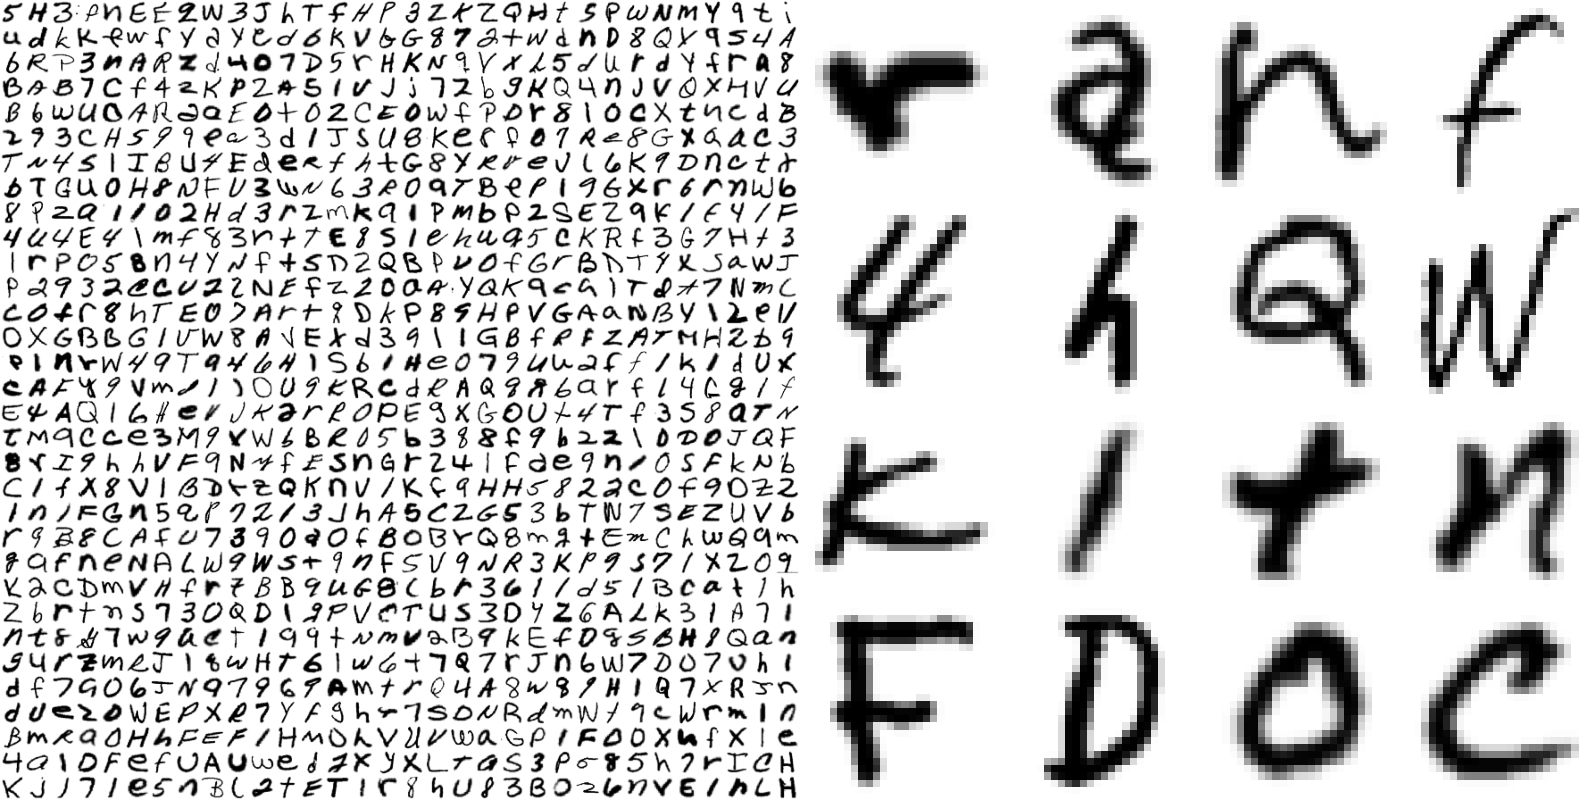 5 H 3 : P n E E 2 W 3 J h T f H P 3 Z K Z Q H t 5 P W N M Y 9 t i
u d k K f e w f Y a Y e d 6 K V 6 G 8 7 2 t W d n D 8 Q Y 9 5 4 A
6 R P 3 n A R Z d 4 0 7 D 5 r H K N 9 V X L 5 d U r d Y f r a 8
B A B 7 C f 4 2 K P 2 A 5 1 U J j 7 2 b 9 K Q 4 n J V Q X H V U
B 6 w U C A R a a E 0 t 0 2 C E 0 W f P D r 8 1 0 C X t n c d B
2 9 3 C H 5 9 9 e a 3 d 1 J S U 8 K e r f 0 7 R e 8 G X a a C 3
T N 4 5 1 I B U 4 E d e R f h t G 8 Y R r e V L 6 K 9 D n c t r
b T G U 0 H 8 N F U 3 W N 6 3 R 0 9 T B e P 1 9 G X r 6 r n W b
8 P 2 a 1 1 0 2 H d 3 r z m k 9 1 P m b P 2 S E Z 9 K 1 E 4 1 F
4 U 4 E 4 1 m f 8 3 n t 7 E 8 S 1 e h u 9 5 C K R f 3 G 7 H t 3
1 r P 0 5 8 n 4 Y N f t S D 2 Q B P U 0 f G r B D T 4 X J a W J
P 2 9 3 2 e C U 2 2 N E f Z 2 0 a A Y Q K 9 c a 1 T d 7 7 N m C
C 0 f r 8 h T E 0 7 A r t 8 D K P 8 9 H P V G A a N B Y 1 2 e U
0 X G B B G 1 U W 8 A V E X d 3 9 1 1 G B f R F Z A T M H 2 b 9
P 1 n r W 4 9 T 9 4 6 H 1 S b 1 H e 0 7 9 4 u a f f 1 k 1 d U X
e A F 4 9 V m d 1 ) 0 U 9 K R C d R A Q 9 8 6 a r f 1 4 C 8 1 f
E 4 A Q 1 6 H e r J K a r R 0 P E 9 X G 0 U t 4 T f 3 5 8 a T N
T M 9 C C e 3 M 9 Y W 6 B R 0 5 b 3 8 8 f 9 b 2 2 1 0 D 0 J Q F
8 r I 9 h h V F 9 N 4 f E S n G r 2 4 1 f d e 9 n 1 0 S F K N b
C 1 f X 8 V 1 B D r Z Q K n V 1 K f 9 H H 5 8 2 2 C 0 f 9 D Z 2
1 n 1 F G n 5 9 P 7 2 1 3 J h A 5 C 2 G 5 3 b T W 7 S E Z U V b
r 9 B 8 C A f U 7 3 9 0 a 0 f B 0 B r Q 8 m 9 t E m C h W Q 9 m
8 a f n e N A L W 9 W S t 9 n F S V 9 N R 3 K P 9 5 7 1 X 2 0 9
K 2 C D m V H f r 7 B B 9 U G 8 C b r 3 6 1 1 d 5 1 B C a t 1 h
Z b r t n S 7 3 0 Q D 1 9 P V C T U S 3 D Y Z 6 A L K 3 1 A 7 1
n t 8 8 7 W 9 a e t 1 9 9 t N m V a B 9 K E f D 8 5 B H 8 Q a n
9 4 r z m R J 1 8 W H T 6 1 W 6 t 7 Q 7 r J n 6 W 7 D 0 7 U h 1
d f 7 9 0 6 J N 9 7 9 6 9 A m t r Q 4 A 8 W 8 9 H 1 Q 7 X R J n
d U e 2 0 W E P X R 7 Y f 9 h r 7 S 0 N R d m W t 9 c W r m 1 n
B m R a 0 H h F E F 1 H m 0 h V U V W a G P 1 F 0 0 X h f X 1 e
4 a 1 D F e f U A U w e d 7 X Y X L r a S 3 P 0 8 5 h 7 r I C H
K J J 7 1 e 5 n B C 2 t E T 1 r 8 h U 8 3 B 0 2 6 n V E 1 h L H
r a n f
4 h Q W
K 1 t n
F D 0 C